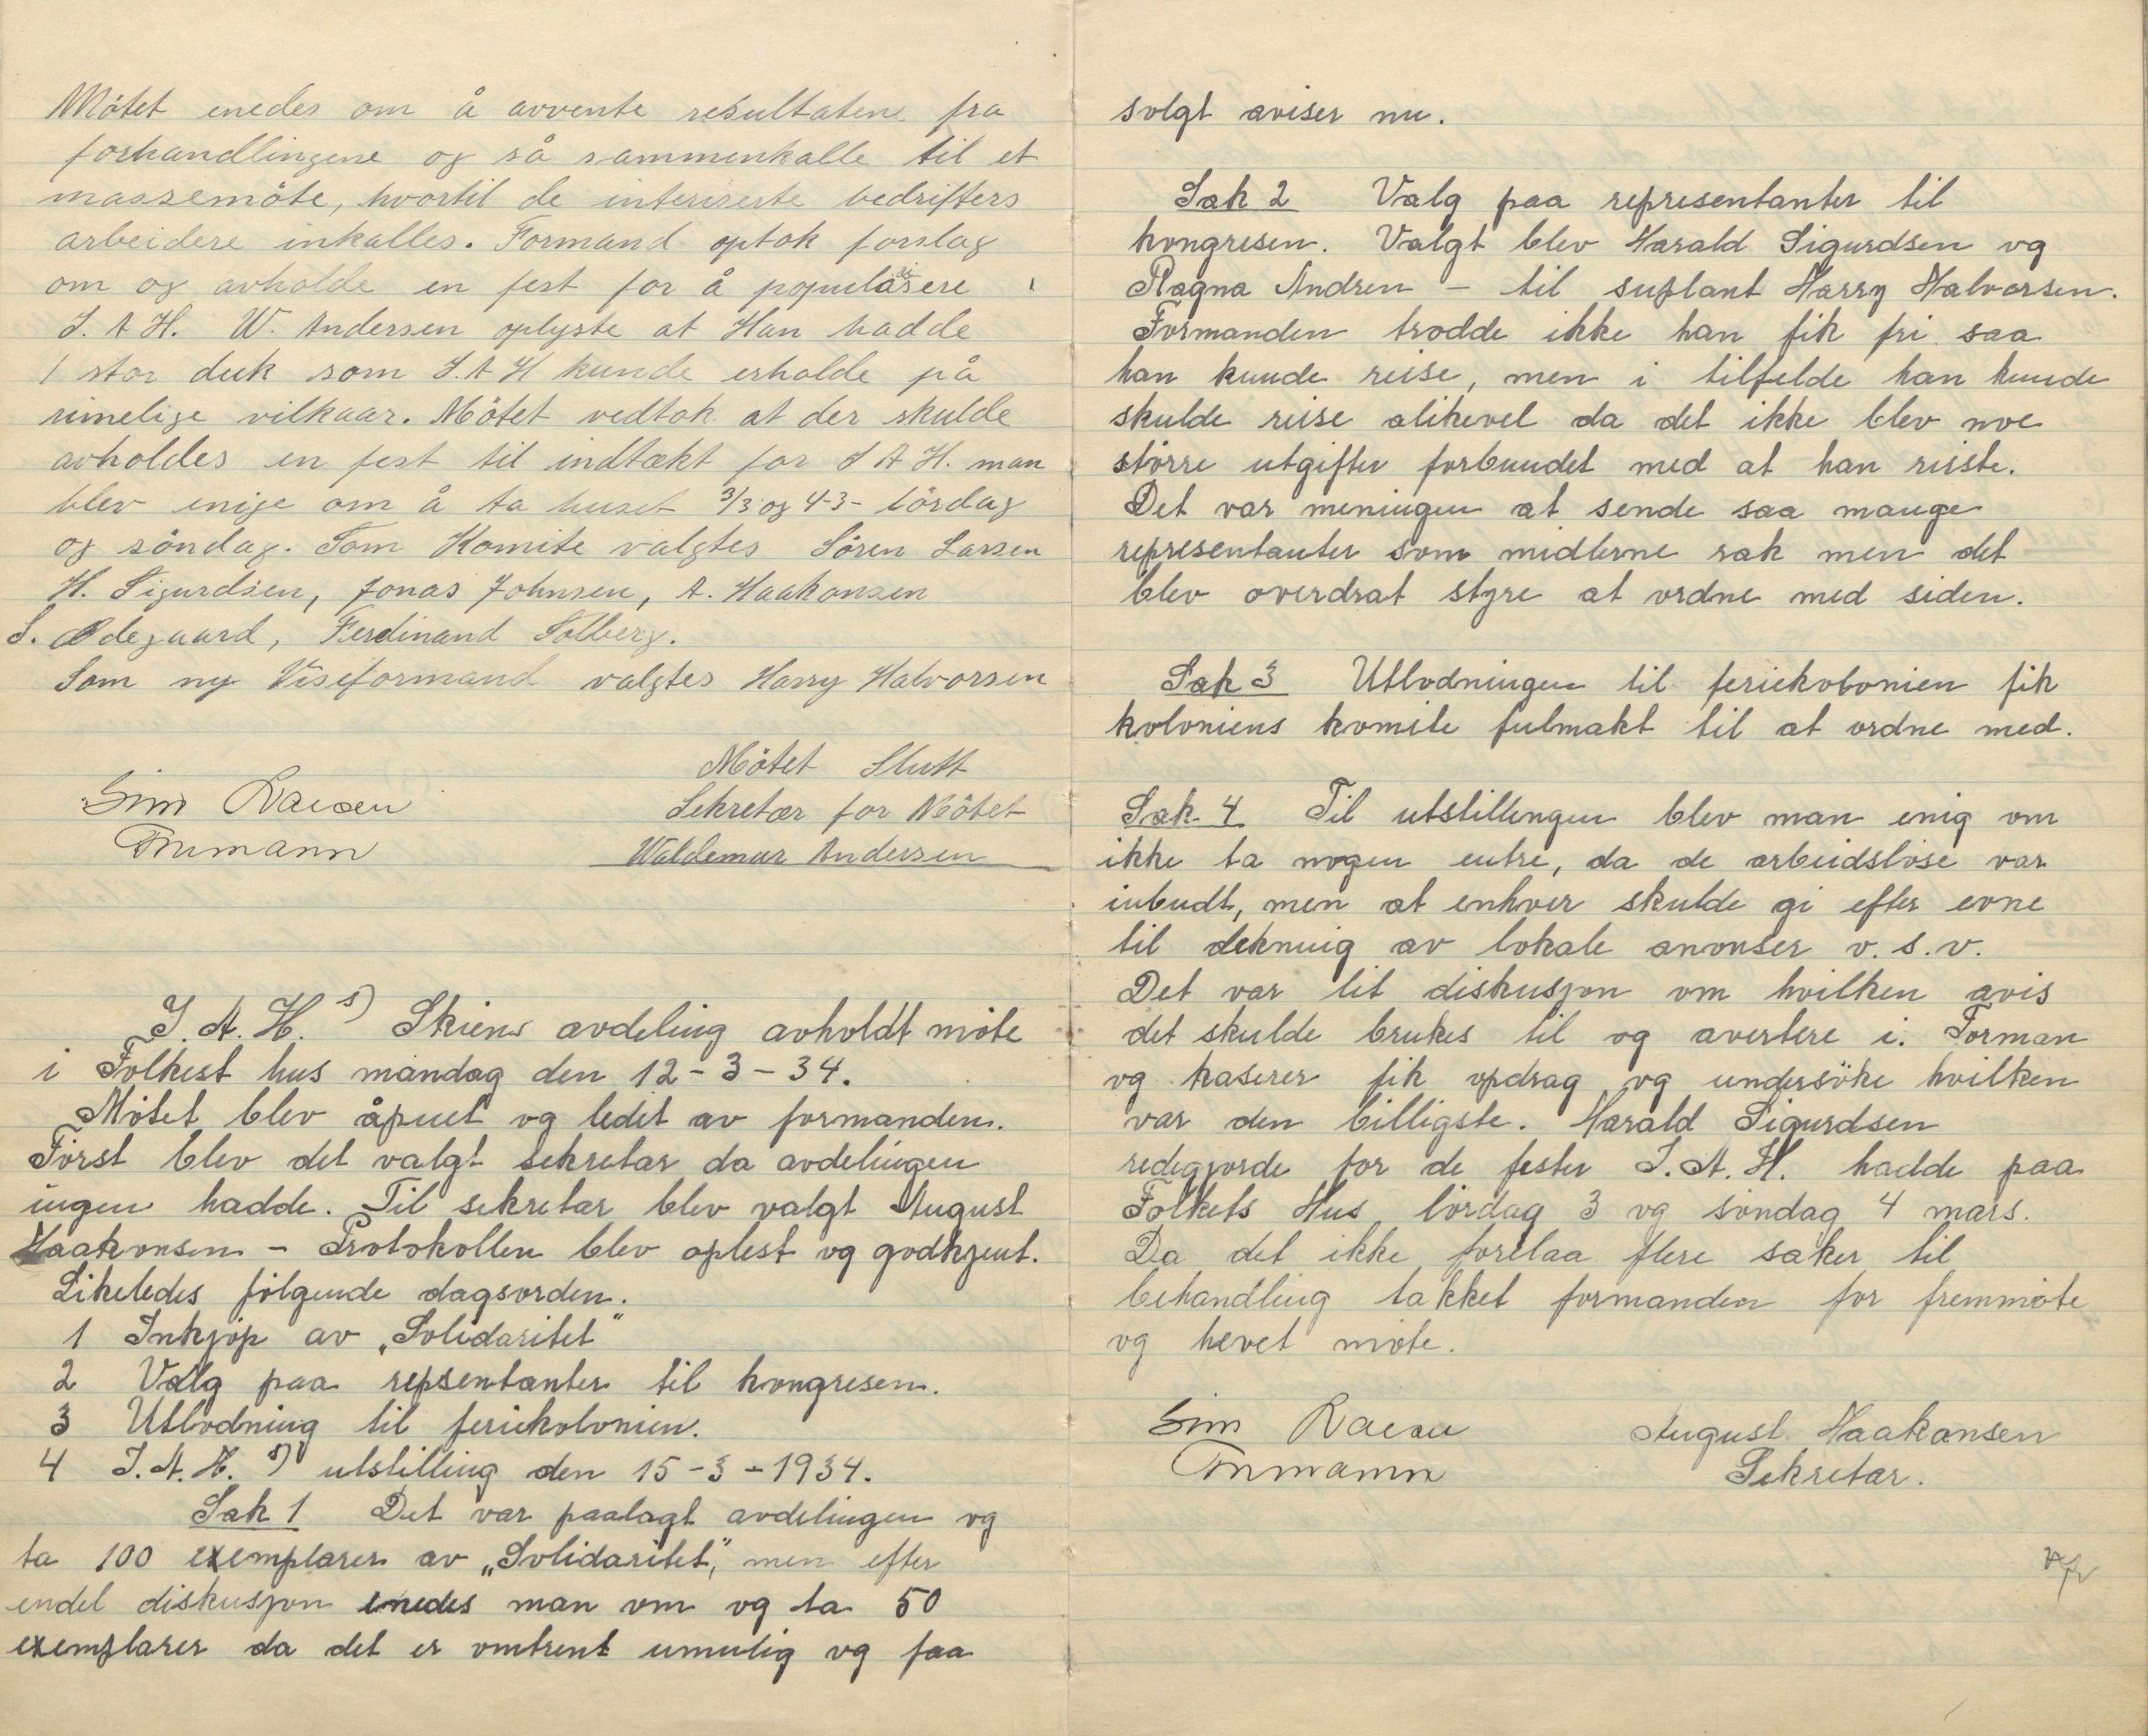 Mötet enedes om å avvente resultatene fra
forhandlingene og så sammenkalle til et
massemöte, hvortil de interiserte bedrifters
arbeidere inkalles. Formand optok forslag
om og avholde en fest for å populærisere
I. A H. W. Andersen oplyste at Han hadde
1 stor duk som I. A H kunde erholde på
rimelige vilkaar. Mötet vedtok at der skulde
avholdes en fest til indtækt for I A H. man
blev enige om å ta huset 3/3 og 4-3- lördag
og söndag. Som Komite valgtes Sören Larsen
H. Sigurdsen, Jonas Johnsen, A. Haakonsen
S. Ødegaard, Ferdinand Solberg.
Som ny Viseformand valgtes Harry Halvorsen
Mötet Slutt
Sekretær for Mötet
Waldemar Andersen
Sörn Larsen
Formann
I. A. H. s) Skiens avdeling avholdt möte
i Folkest hus mandag den 12-3-34.
Mötet blev åpnet og ledet av formanden.
Först blev det valgt sekretær da avdelingen
ingen hadde. Til sekretær blev valgt August
Haakonsen - Protokollen blev oplest og godkjent.
Likeledes fölgende dagsorden.
1 Inkjöp av „Solidaritet"
2 Valg paa repsentanter til kongresen.
3 Utlodning til feriekolonien.
4 I. A. H. s) utstilling den 15-3-1934.
Sak 1 Det var paalagt avdelingen og
ta 100 exemplarer av „Solidaritet", men efter
endel diskusjon enedes man om og ta 50
exemplarer da det er omtrent umulig og faa
solgt aviser nu.
Sak 2 Valg paa representanter til
kongresen. Valgt blev Harald Sigurdsen og
Ragna Andren - til suplant Harry Halvorsen.
Formanden trodde ikke han fik fri saa
han kunde reise, men i tilfelde han kunde
skulde reise alikevel da det ikke blev noe
större utgifter forbundet med at han reiste.
Det var meningen at sende saa mange
representanter som midlerne rak men det
blev overdrat styre at ordne med siden.
Sak 3 Utlodningen til feriekolonien fik
koloniens komite fulmakt til at ordne med.
Sak 4 Til utstillingen blev man enig om
ikke ta nogen entre, da de arbeidslöse var
inbudt, men at enhver skulde gi efter evne
til dekning av lokale anonser o. s. v.
Det var lit diskusjon om hvilken avis
det skulde brukes til og avertere i. Forman
og kaserer fik opdrag og undersöke hvilken
var den billigste. Harald Sigurdsen
redegjorde for de fester I. A. H. hadde paa
Folkets Hus lördag 3 og söndag 4 mars.
Da det ikke forelaa flere saker til
behandling takket formanden for fremmöte
og hevet möte.
Sörn Larsen
Formann
August Haakonsen
Sekretær.